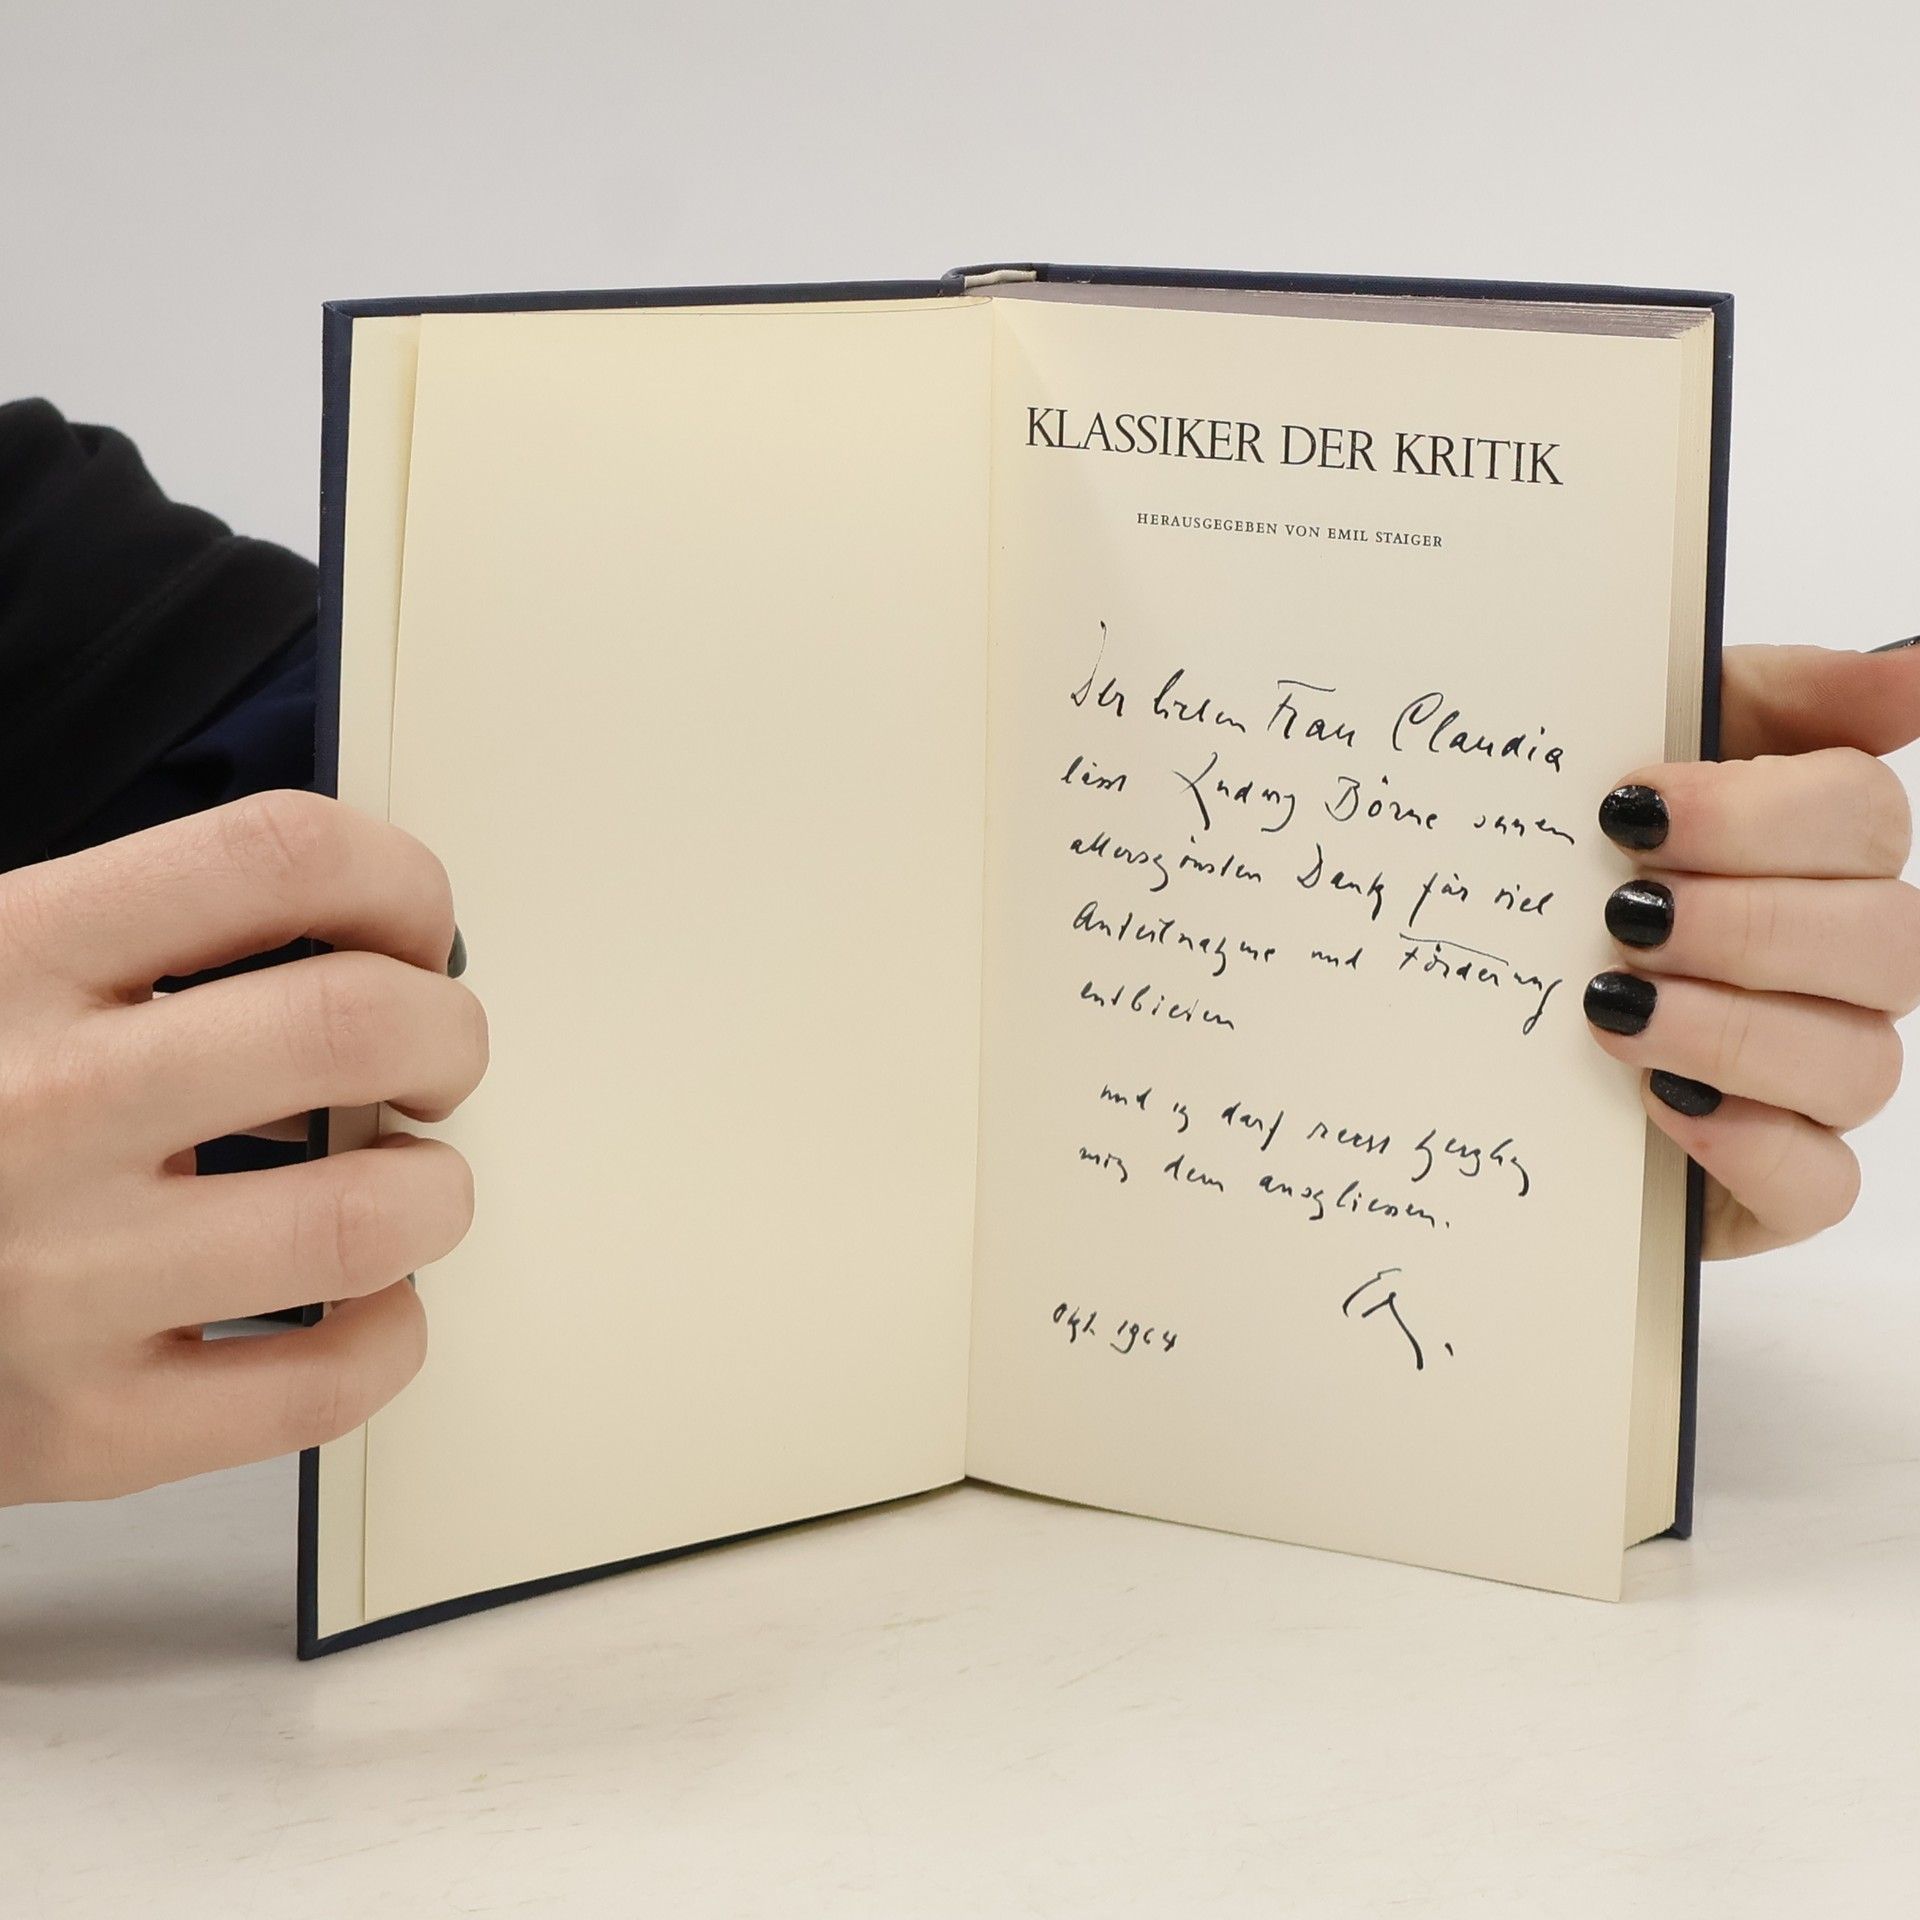 KLASSIKER DER KRITIK
HERAUSGEGEBEN VON EMIL STAIGER
Der lieben Frau Claudia
lässt Ludwig Börne seinen
allerschönsten Dank für viel
Anteilnahme und Förderung
entbieten
und ich darf herzlich
mich dem anschliessen.
Okt. 1964